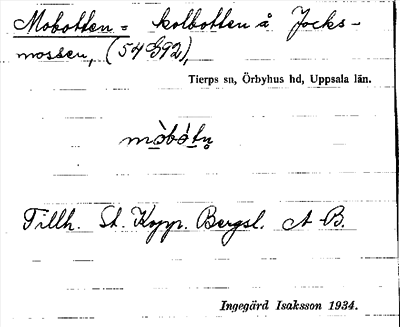 Mobotten = kolbotten å Jocks-
mossen, (54 G92),
Tierps sn, Örbyhus hd, Uppsala län.
mòbòtn̥
Tillh. St. Kopp. Bergsl. A-B.
Ingegärd Isaksson 1934.